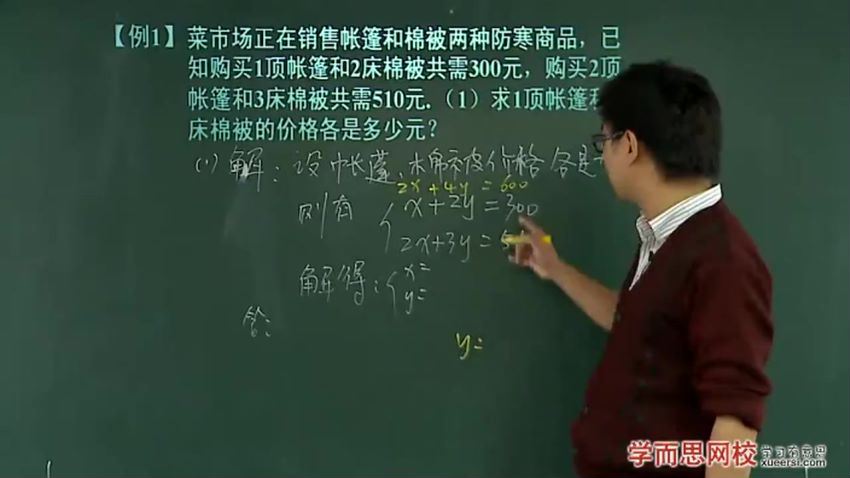 【例1】菜市场正在销售帐篷和棉被两种防寒商品，已
知购买1顶帐篷和2床棉被共需300元，购买2顶
帐篷和3床棉被共需510元.（1）求1顶帐篷和
床棉被的价格各是多少元？
(1) 解：设帐蓬、棉被价格各是
2x+4y=600
则有 { x+2y=300
2x+3y=5
解得：{ x=
y=
答：
y=
学而思网校 学习有意思
xueersi.com